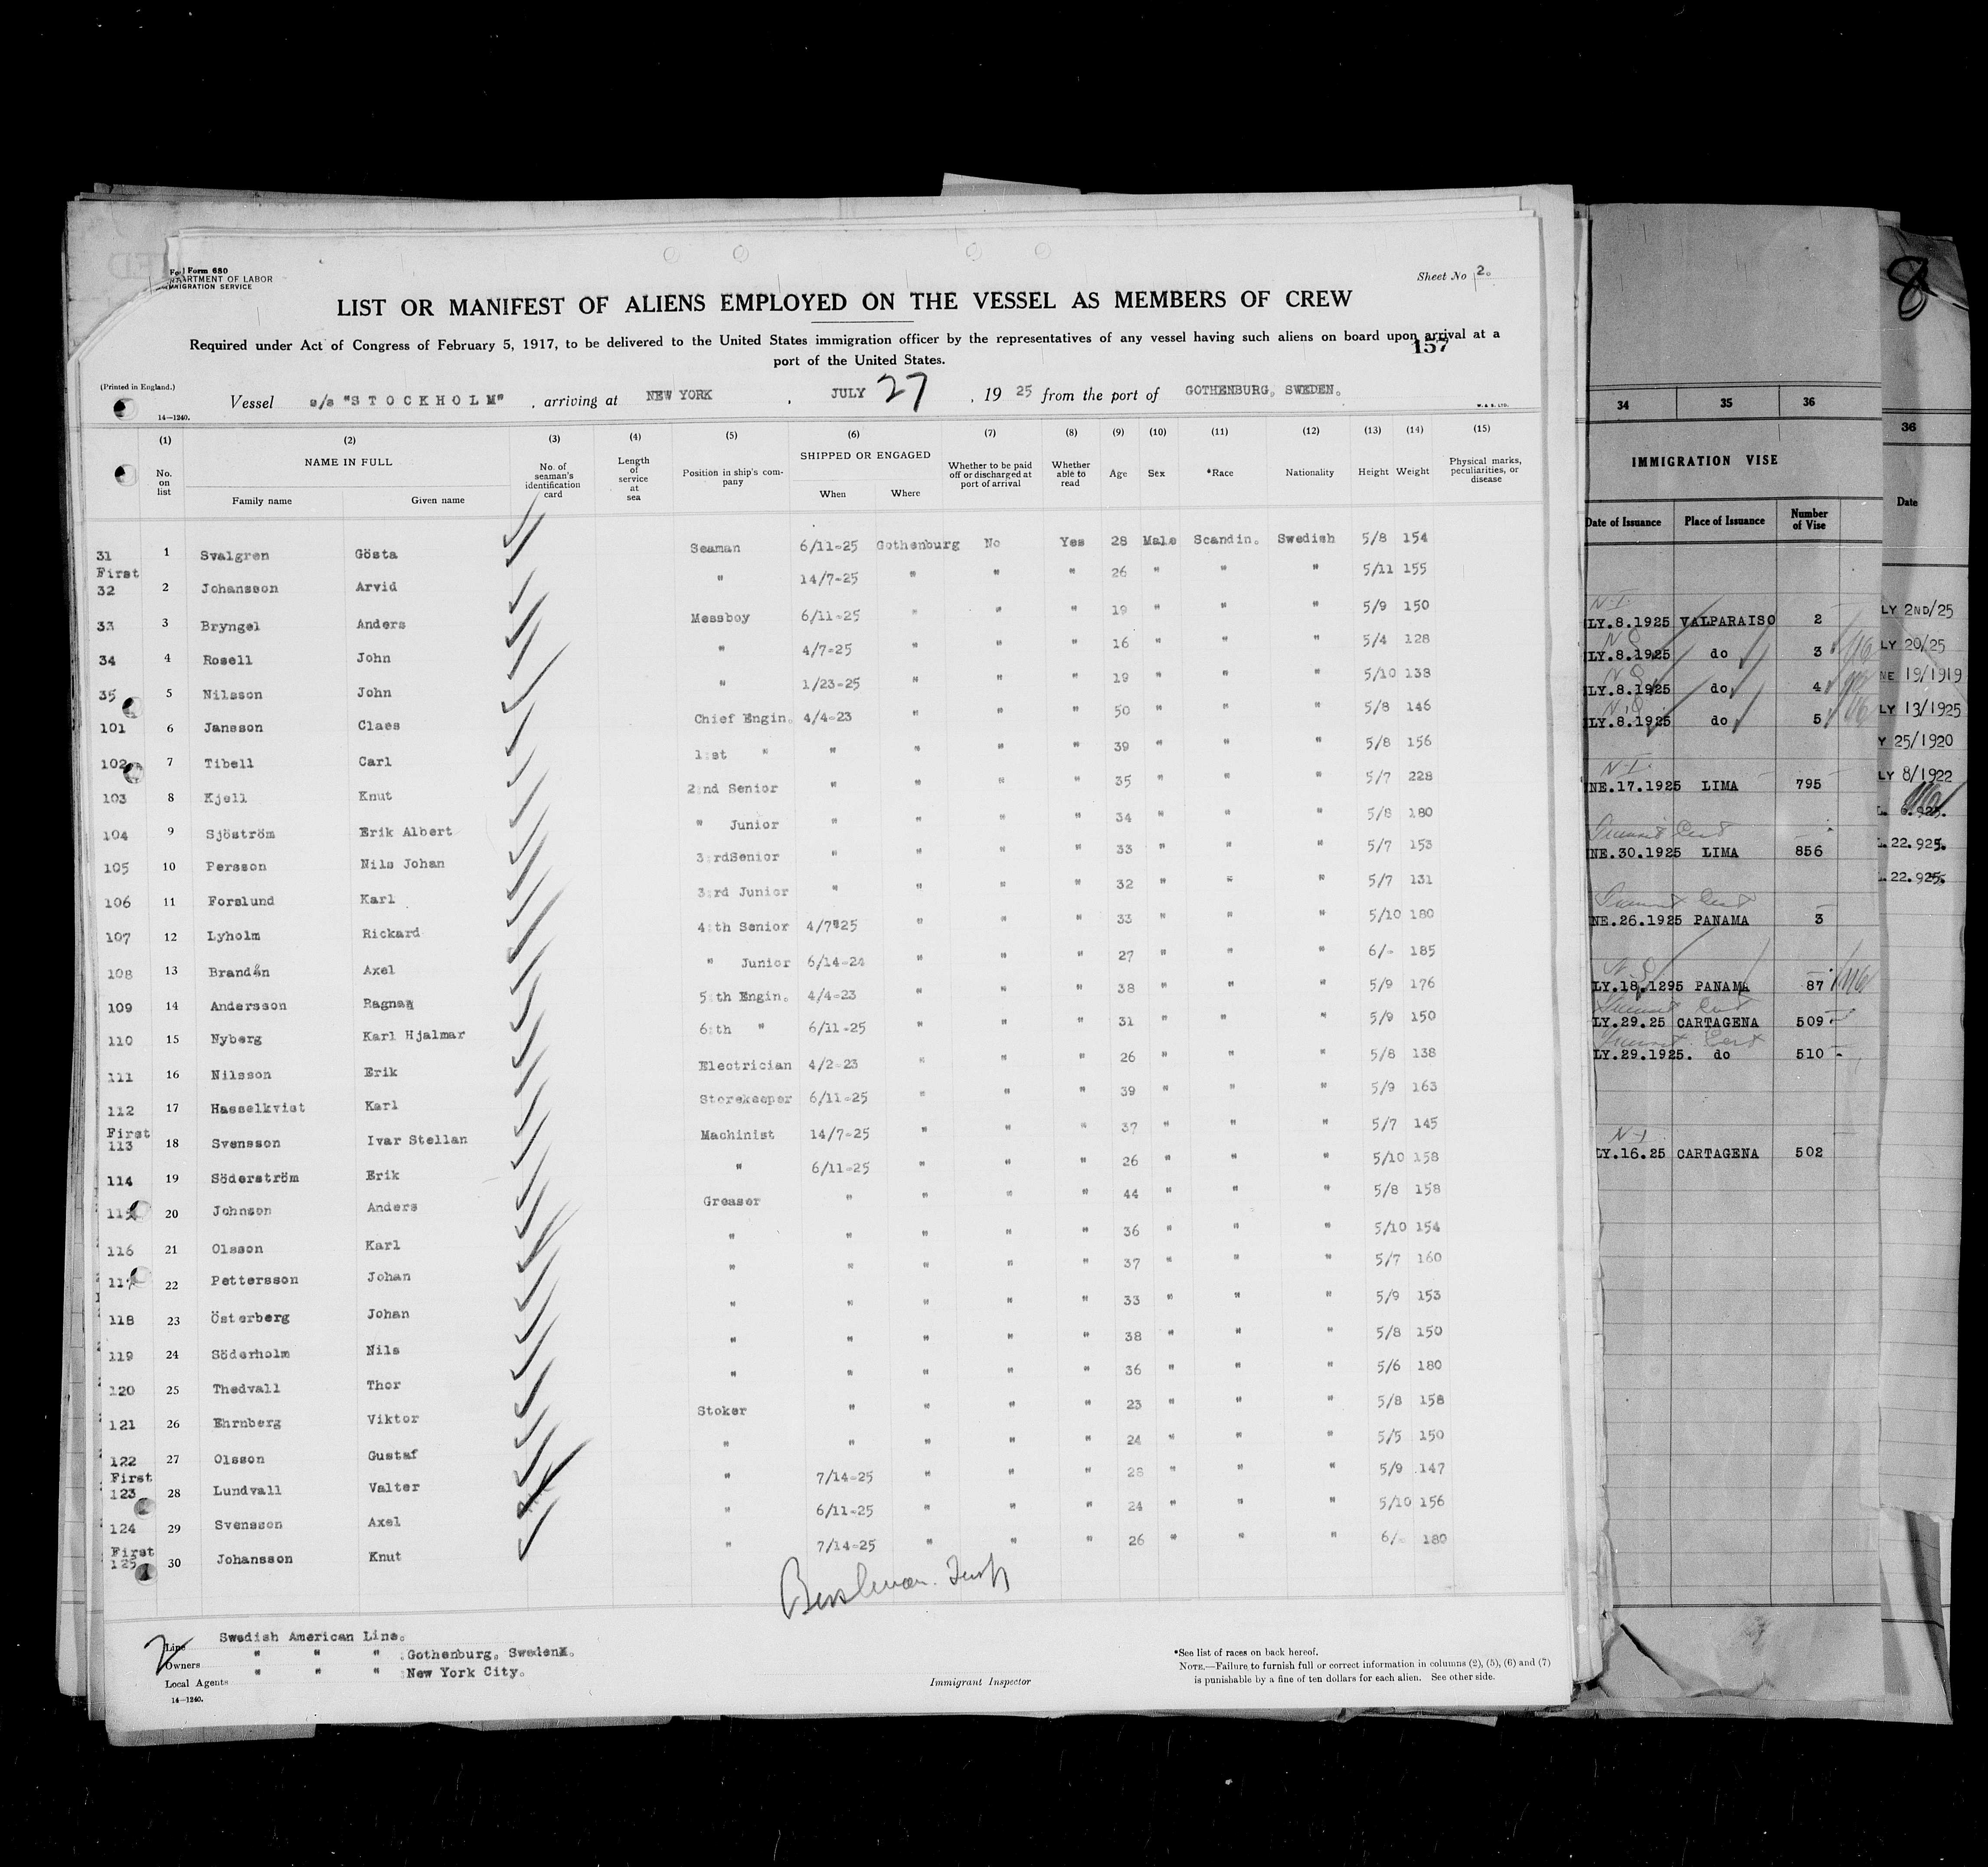 Form 680
DEPARTMENT OF LABOR
IMMIGRATION SERVICE
Sheet No 2.
LIST OR MANIFEST OF ALIENS EMPLOYED ON THE VESSEL AS MEMBERS OF CREW
Required under Act of Congress of February 5, 1917, to be delivered to the United States immigration officer by the representatives of any vessel having such aliens on board upon arrival at a
port of the United States.
157
(Printed in England.)
Vessel s/s "STOCKHOLM" , arriving at NEW YORK , JULY 27 , 19 25 from the port of GOTHENBURG, SWEDEN.
14—1240.
(1) (2) (3) (4) (5) (6) (7) (8) (9) (10) (11) (12) (13) (14) (15)
No. on list NAME IN FULL Family name Given name No. of seaman's identification card Length of service at sea Position in ship's company SHIPPED OR ENGAGED When Where Whether to be paid off or discharged at port of arrival Whether able to read Age Sex *Race Nationality Height Weight Physical marks, peculiarities, or disease
31 1 Svalgren Gösta Seaman 6/11-25 Gothenburg No Yes 28 Male Scandin. Swedish 5/8 154
First
32 2 Johansson Arvid " 14/7-25 " " " 26 " " " 5/11 155
33 3 Bryngel Anders Messboy 6/11-25 " " " 19 " " " 5/9 150
34 4 Rosell John " 4/7-25 " " " 16 " " " 5/4 128
35 5 Nilsson John " 1/23-25 " " " 19 " " " 5/10 138
101 6 Jansson Claes Chief Engin. 4/4-23 " " " 50 " " " 5/8 146
102 7 Tibell Carl 1:st " " " " " 39 " " " 5/8 156
103 8 Kjell Knut 2:nd Senior " " " " 35 " " " 5/7 228
104 9 Sjöström Erik Albert " Junior " " " " 34 " " " 5/8 180
105 10 Persson Nils Johan 3:rdSenior " " " " 33 " " " 5/7 153
106 11 Forslund Karl 3:rd Junior " " " " 32 " " " 5/7 131
107 12 Lyholm Rickard 4:th Senior 4/7"25 " " " 33 " " " 5/10 180
108 13 Brandån Axel " Junior 6/14-24 " " " 27 " " " 6/- 185
109 14 Andersson Ragnar 5:th Engin. 4/4-23 " " " 38 " " " 5/9 176
110 15 Nyberg Karl Hjalmar 6:th " 6/11-25 " " " 31 " " " 5/9 150
111 16 Nilsson Erik Electrician 4/2-23 " " " 26 " " " 5/8 138
112 17 Hasselkvist Karl Storekeeper 6/11-25 " " " 39 " " " 5/9 163
First
113 18 Svensson Ivar Stellan Machinist 14/7-25 " " " 37 " " " 5/7 145
114 19 Söderström Erik " 6/11-25 " " " 26 " " " 5/10 158
115 20 Johnson Anders Greaser " " " " 44 " " " 5/8 158
116 21 Olsson Karl " " " " " 36 " " " 5/10 154
117 22 Pettersson Johan " " " " " 37 " " " 5/7 160
118 23 Österberg Johan " " " " " 33 " " " 5/9 153
119 24 Söderholm Nils " " " " " 38 " " " 5/8 150
120 25 Thedvall Thor " " " " " 36 " " " 5/6 180
121 26 Ehrnberg Viktor Stoker " " " " 23 " " " 5/8 158
122 27 Olsson Gustaf " " " " " 24 " " " 5/5 150
First
123 28 Lundvall Valter " 7/14-25 " " " 28 " " " 5/9 147
124 29 Svensson Axel " 6/11-25 " " " 24 " " " 5/10 156
First
125 30 Johansson Knut " 7/14-25 " " " 26 " " " 6/- 180
Line Swedish American Line.
Owners " " " :Gothenburg, Sweden.
Local Agents " " " :New York City.
14—1240.
Immigrant Inspector
*See list of races on back hereof.
NOTE.—Failure to furnish full or correct information in columns (2), (5), (6) and (7)
is punishable by a fine of ten dollars for each alien. See other side.
34 35 36
IMMIGRATION VISE
Date of Issuance Place of Issuance Number of Vise
N.I.
LY.8.1925 VALPARAISO 2
LY.8.1925 do 3
LY.8.1925 do 4
LY.8.1925 do 5
N.I.
NE.17.1925 LIMA 795
Transit Cert
NE.30.1925 LIMA 856
Transit Cert
NE.26.1925 PANAMA 3
LY.18.1295 PANAMA 87
Transit Cert
LY.29.25 CARTAGENA 509
Transit Cert
LY.29.1925. do 510
N.I.
LY.16.25 CARTAGENA 502
8
36
Date
LY 2ND/25
LY 20/25
NE 19/1919
LY 13/1925
Y 25/1920
LY 8/1922
6.925.
22.925.
22.925.